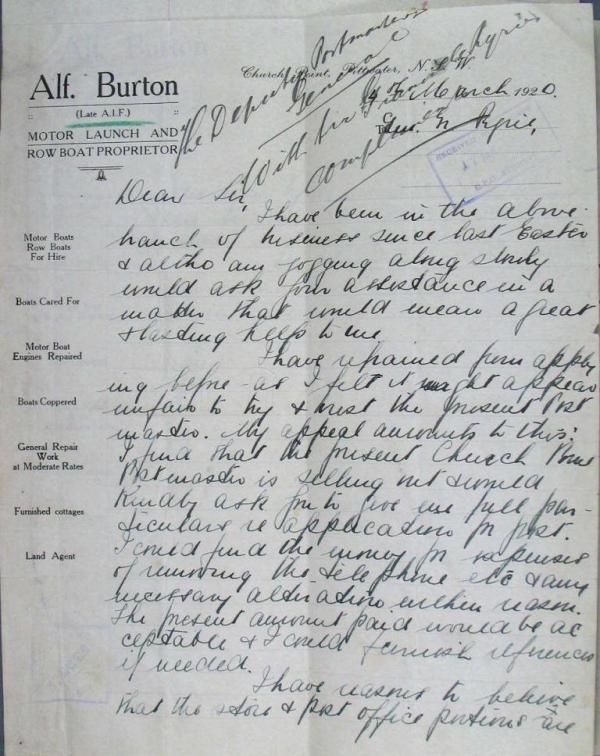 Alf. Burton
(Late A.I.F.)
MOTOR LAUNCH AND
ROW BOAT PROPRIETOR
Church Point, Pittwater, N.S.W.
March 1920.
The Deputy Postmaster
General
With Sir
compliments
Dear Sir,
I have been in the above
branch of business since last Easter
& altho am jogging along slowly
would ask your assistance in a
matter that would mean a great
& lasting help to me.
I have refrained from apply-
ing before as I felt it might appear
unfair to try & oust the present Post
master. My appeal amounts to this:
I find that the present Church Point
Postmaster is selling out & would
Kindly ask you to give me full par-
ticulars re application for post.
I could find the money for expenses
of removing the telephone etc & any
necessary alteration within reason.
The present amount paid would be ac
ceptable & I could furnish references
if needed.
I have reasons to believe
that the store & post office portions are
Motor Boats
Row Boats
For Hire
Boats Cared For
Motor Boat
Engines Repaired
Boats Coppered
General Repair
Work
at Moderate Rates
Furnished cottages
Land Agent